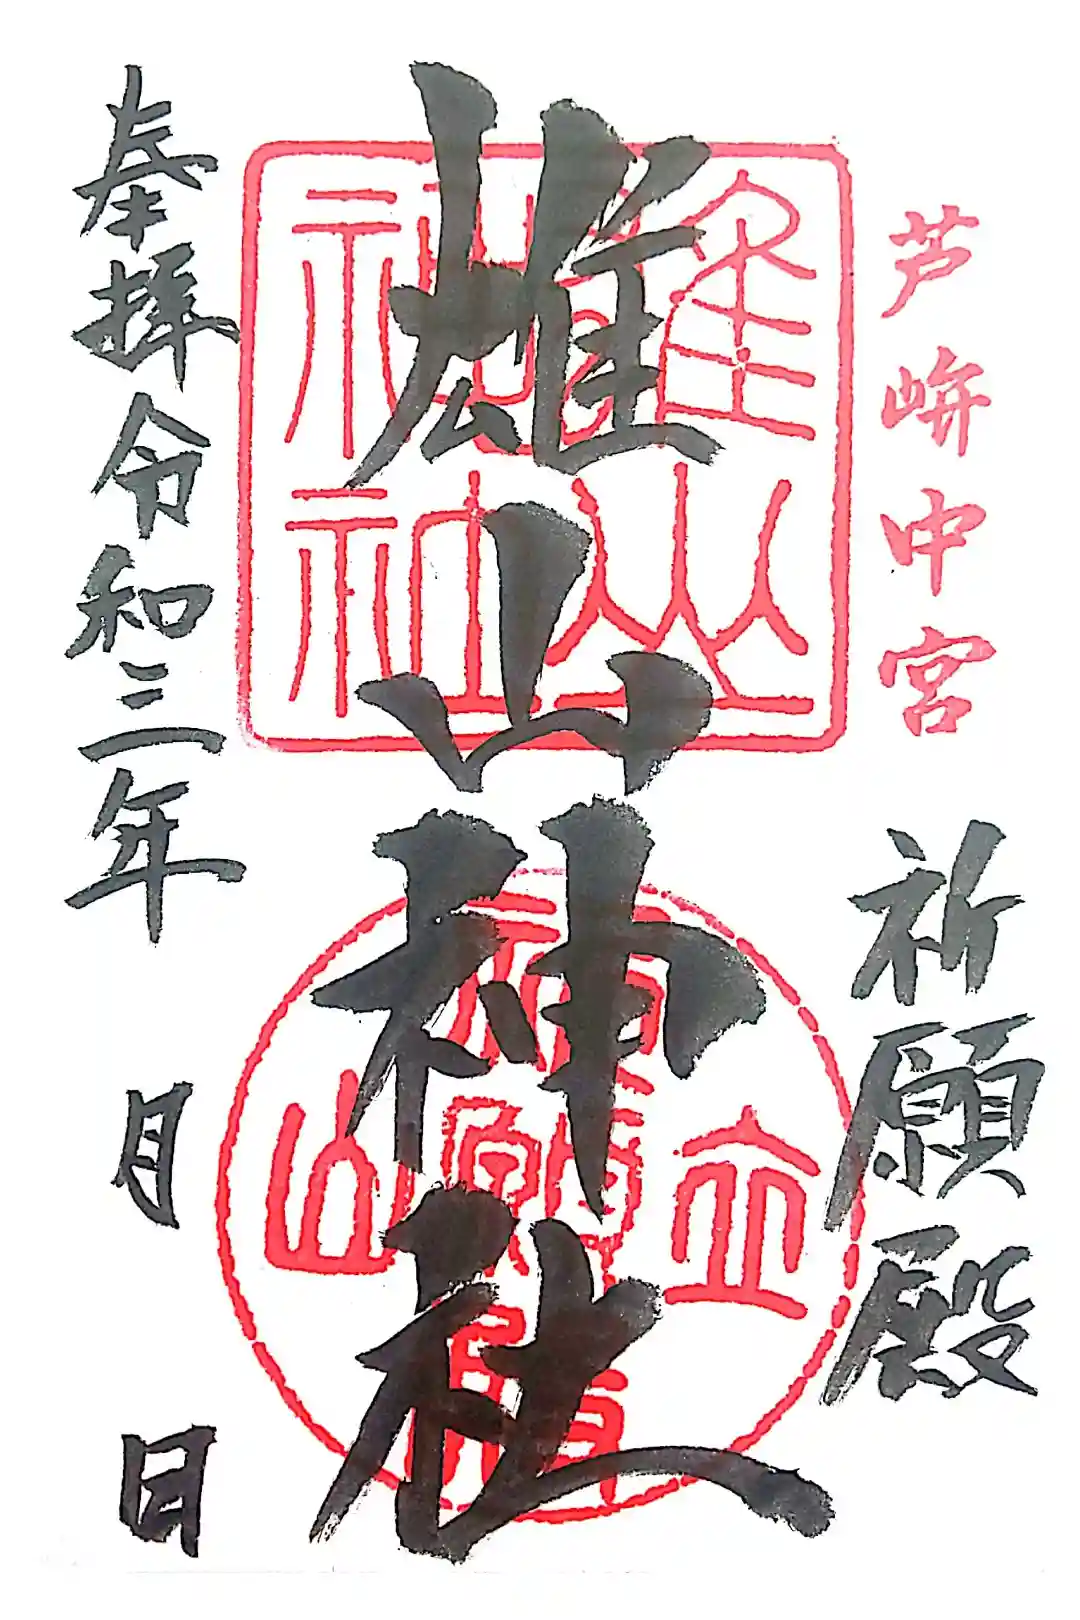 芦峅中宮
祈願殿
雄山神社
雄山神社
立山祈願殿
奉拝令和三年
月
日